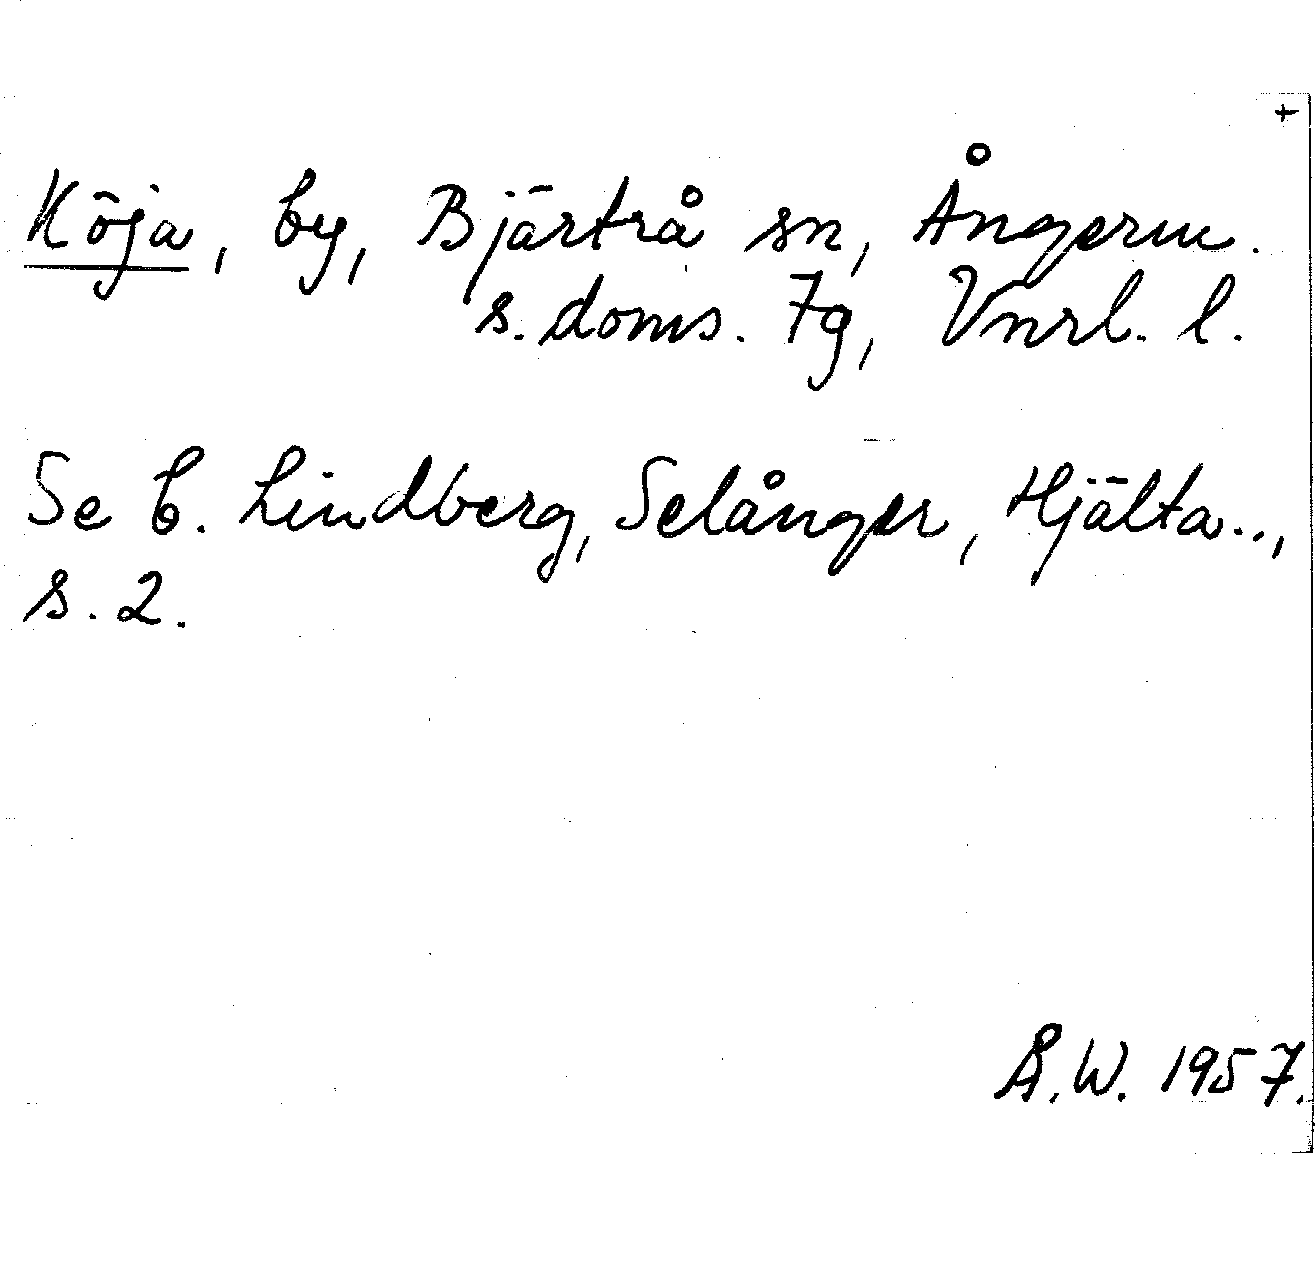 +
Köja, by, Bjärtrå sn, Ångerm.
s. doms. 7g, Vnrl. l.
Se C. Lindberg, Selånger, Hjälta..,
s. 2.
Å.W. 1957.